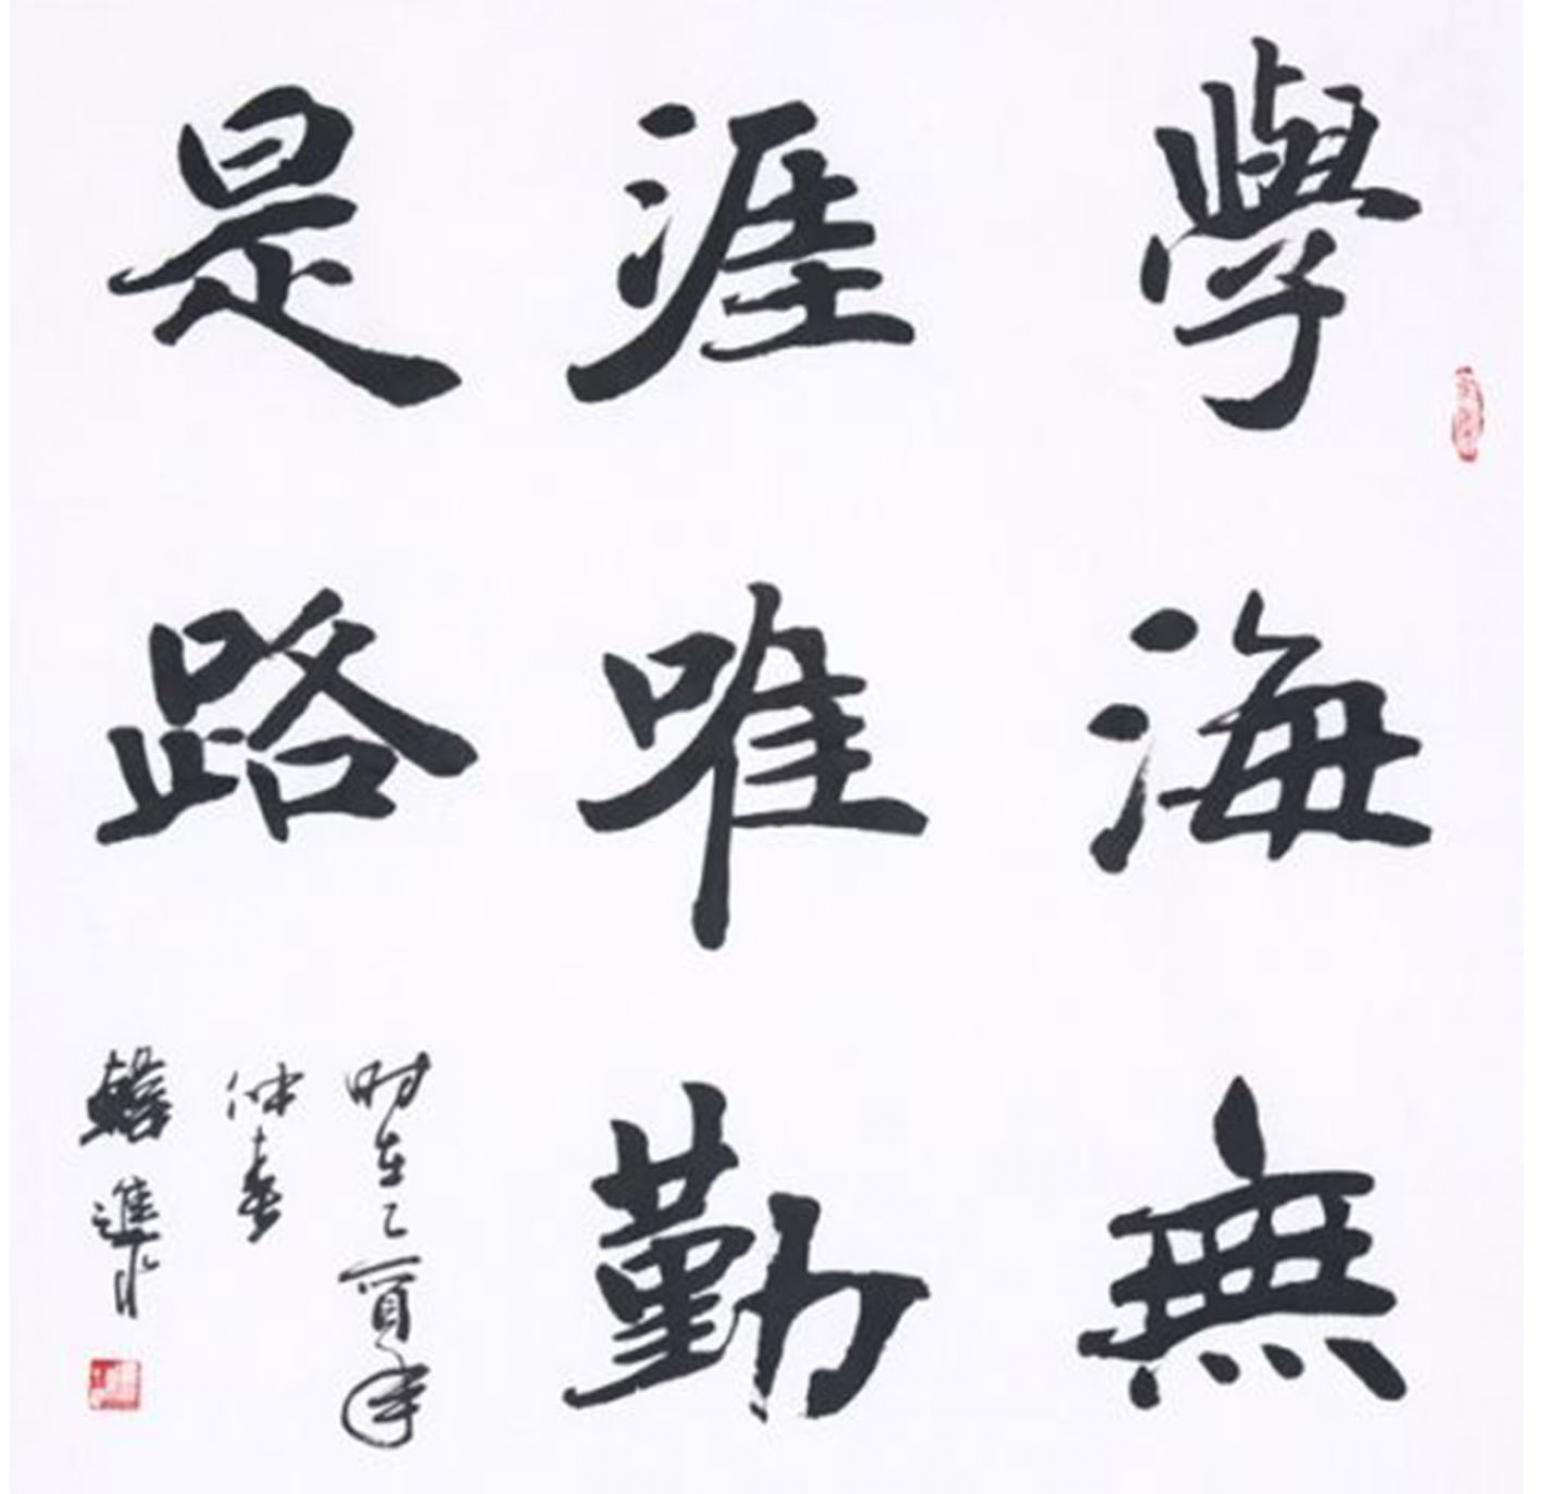 學海無
涯唯勤
是路
时在乙酉年
仲春
進